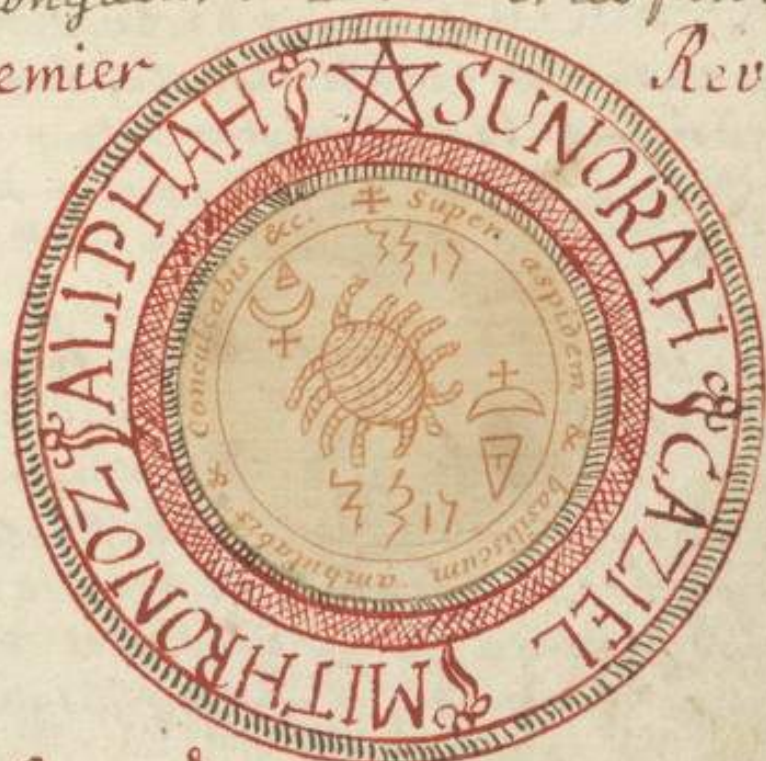 emier Rev
SUNORAH CAZIEL MITHRONOZ ALIPHAH
Super aspidem & basiliscum ambulabis & conculcabis &c.